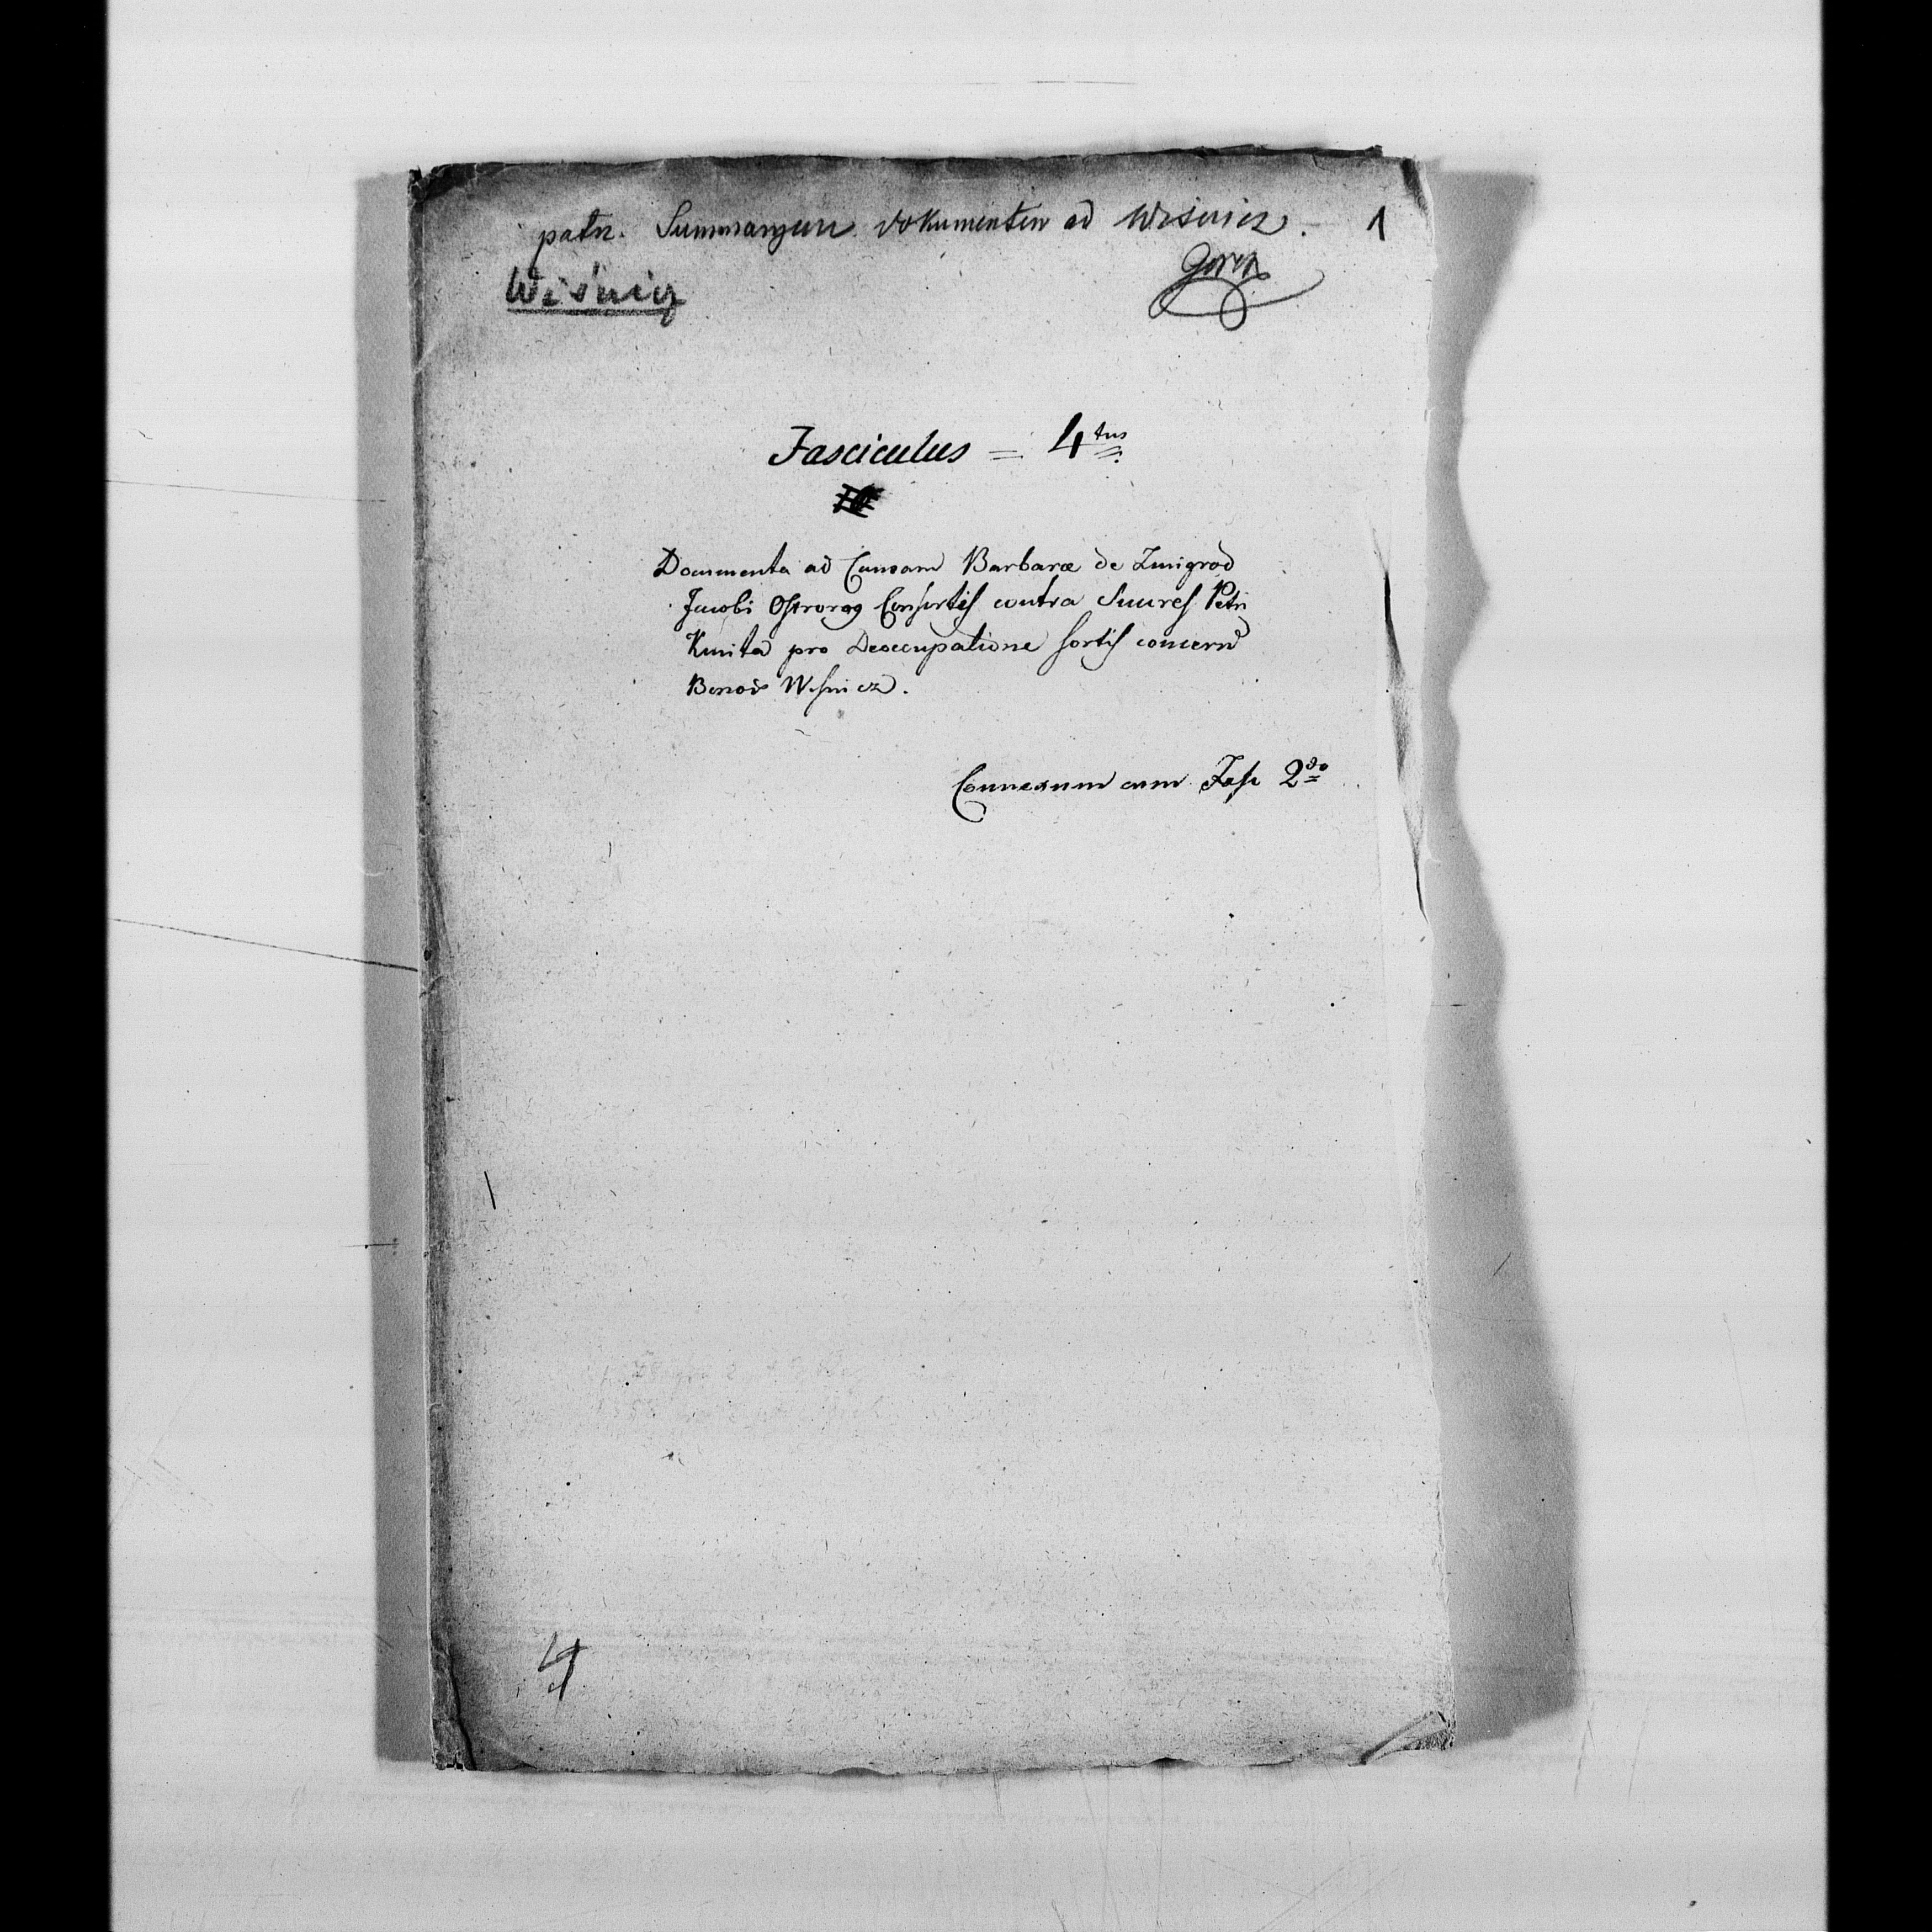 patrz. Summaryum dokumentów ad Wiśnicz. 1
Wiśnicz
Fasciculus = 4tus
Documenta ad Causam Barbaræ de Zmigrod
Jacobi Ostrorog Consortis contra Succes Petri
Kmita pro Deoccupatione sortis concern
Bonor Wisnicz.
Connexum cum Fasc 2do
4